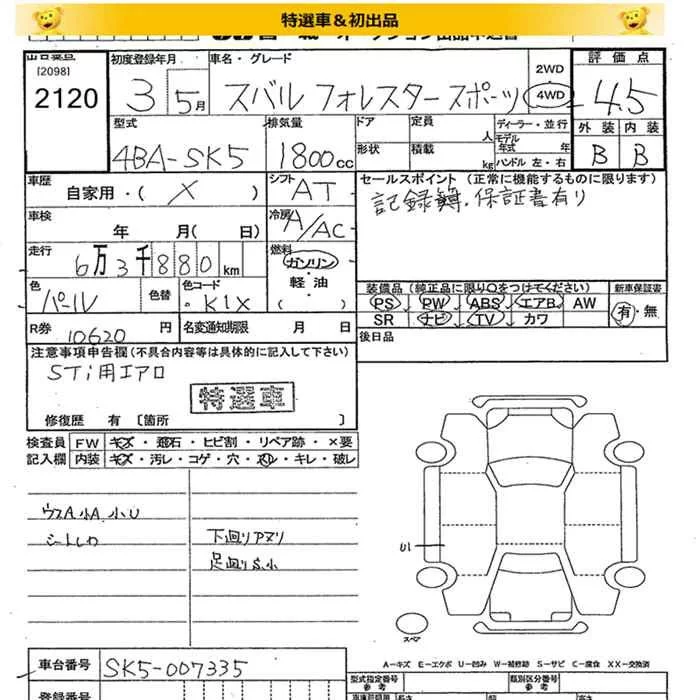 特選車＆初出品
出品番号
[2098]
2120
初度登録年月
3 5月
車名・グレード
スバル フォレスター スポーツ
2WD
4WD
評価点
4.5
外装 内装
B B
型式
4BA-SK5
排気量
1800cc
ドア
形状
定員 人
積載 kg
ディーラー・並行
モデル年式 年
ハンドル 左・右
車歴
自家用・( X )
シフト
AT
セールスポイント (正常に機能するものに限ります)
記録簿.保証書有り
車検
年 月( 日)
冷房
A/AC
走行
6万3千880km
燃料
ガソリン
軽油
( )
色
パール
色替
色コード
K1X
装備品(純正品に限り○をつけてください)
新車保証書
PS PW ABS エアB AW
SR ナビ TV カワ
有・無
R券 10620円
名変通知期限 月 日
後日品
注意事項申告欄(不具合内容等は具体的に記入して下さい)
STi用エアロ
特選車
修復歴 有 [箇所 ]
検査員記入欄
FW キズ・飛石・ヒビ割・リペア跡・×要
内装 キズ・汚レ・コゲ・穴・スレ・キレ・破レ
ウスA 小A 小U
シートしわ
下廻りアマリ
足廻りS小
U1
スペア
A－キズ E－エクボ U－凹み W－補修跡 S－サビ C－腐食 XX－交換済
車台番号
SK5-007335
型式指定番号
参考
類別区分番号
参考
登録番号
長さ
高さ